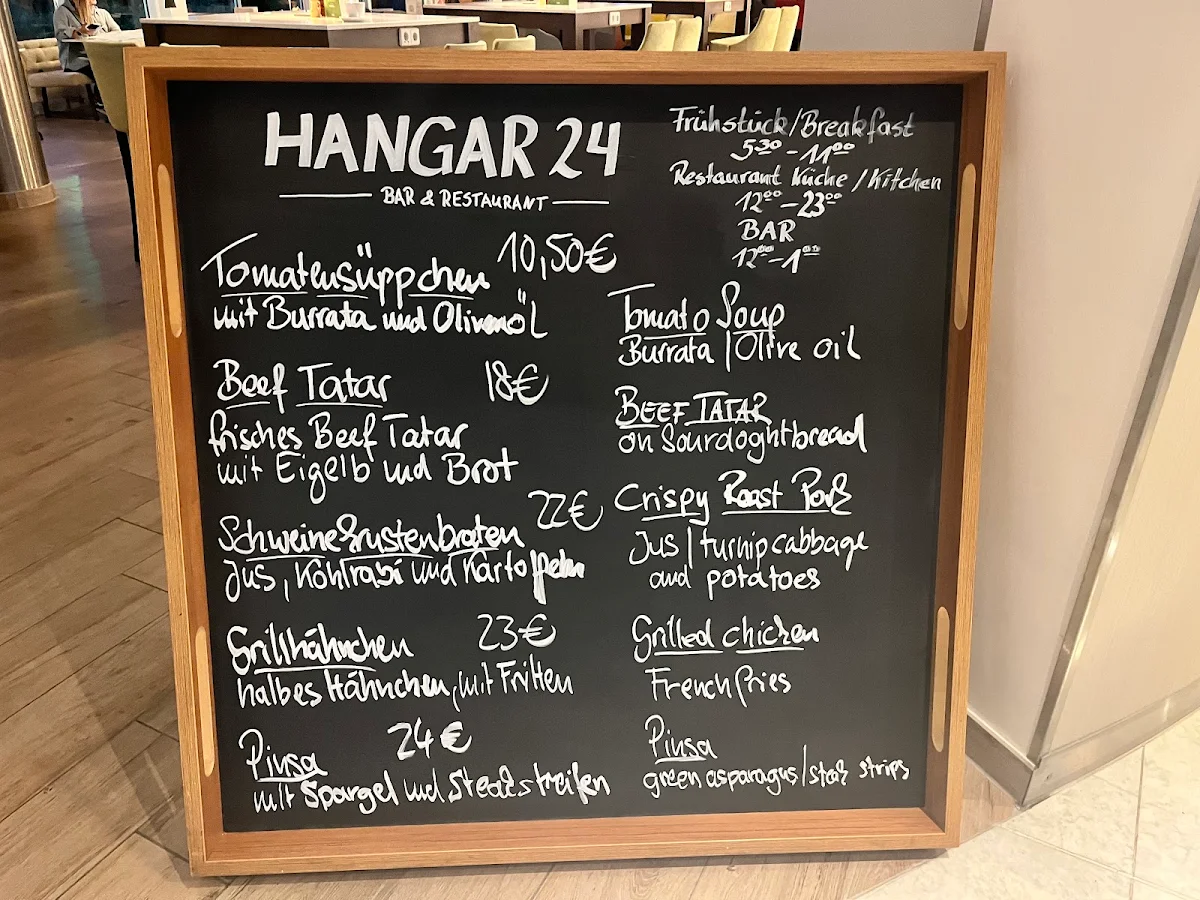 HANGAR 24
BAR & RESTAURANT
Frühstück/Breakfast
5³⁰-11⁰⁰
Restaurant Küche/Kitchen
12⁰⁰-23⁰⁰
BAR
12⁰⁰-1⁰⁰
Tomatensüppchen 10,50€
mit Burrata und Olivenöl
Beef Tatar 18€
frisches Beef Tatar
mit Eigelb und Brot
Schweinekrustenbraten 22€
Jus, Kohlrabi und Kartoffeln
Grillhähnchen 23€
halbes Hähnchen, mit Fritten
Pinsa 24€
mit Spargel und Steakstreifen
Tomato Soup
Burrata | Olive oil
BEEF TATAR
on Sourdoghtbread
Crispy Roast Pork
Jus | turnip cabbage
and potatoes
Grilled chicken
French fries
Pinsa
green asparagus/steak strips